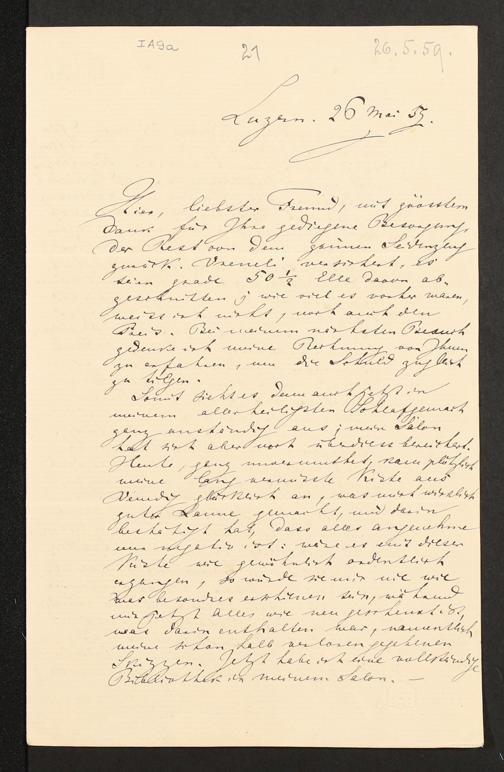 IA9a
21
26.5.59.
Luzern. 26 Mai 59.
Hier, liebster Freund, mit grösstem
Dank für Ihre gediegene Besorgung,
der Rest von dem grünen Seidenzeug
zurück. Vreneli versichert, es
seien grade 50 ½ Elle davon ab-
geschnitten; wie viel es vorher waren,
weiss ich nicht, noch auch den
Preis. Bei meinem nächsten Besuch
gedenke ich meine Rechnung von Ihnen
zu erfahren, um die Schuld zugleich
zu tilgen.
Somit sieht es denn auch jetzt in
meinem allerheiligsten Schlafgemach
ganz anständig aus; mein Salon
hat sich aber noch überdiess bereichert.
Heute, ganz unvermuthet, kam plötzlich
meine lang vermisste Kiste aus
Venedig glücklich an, was mich wirklich
guter Laune gemacht, und darin
bestätigt hat, dass alles angenehme
nur negativ ist: wäre es mit dieser
Kiste wie gewöhnlich ordentlich
ergangen, so würde sie mir nie wie
was besondres erschienen sein, während
mir jetzt Alles wie neu geschenkt ist,
was darin enthalten war, namentlich
meine schon halb verloren gegebenen
Skizzen. Jetzt habe ich eine vollständige
Bibliothek in meinem Salon. —